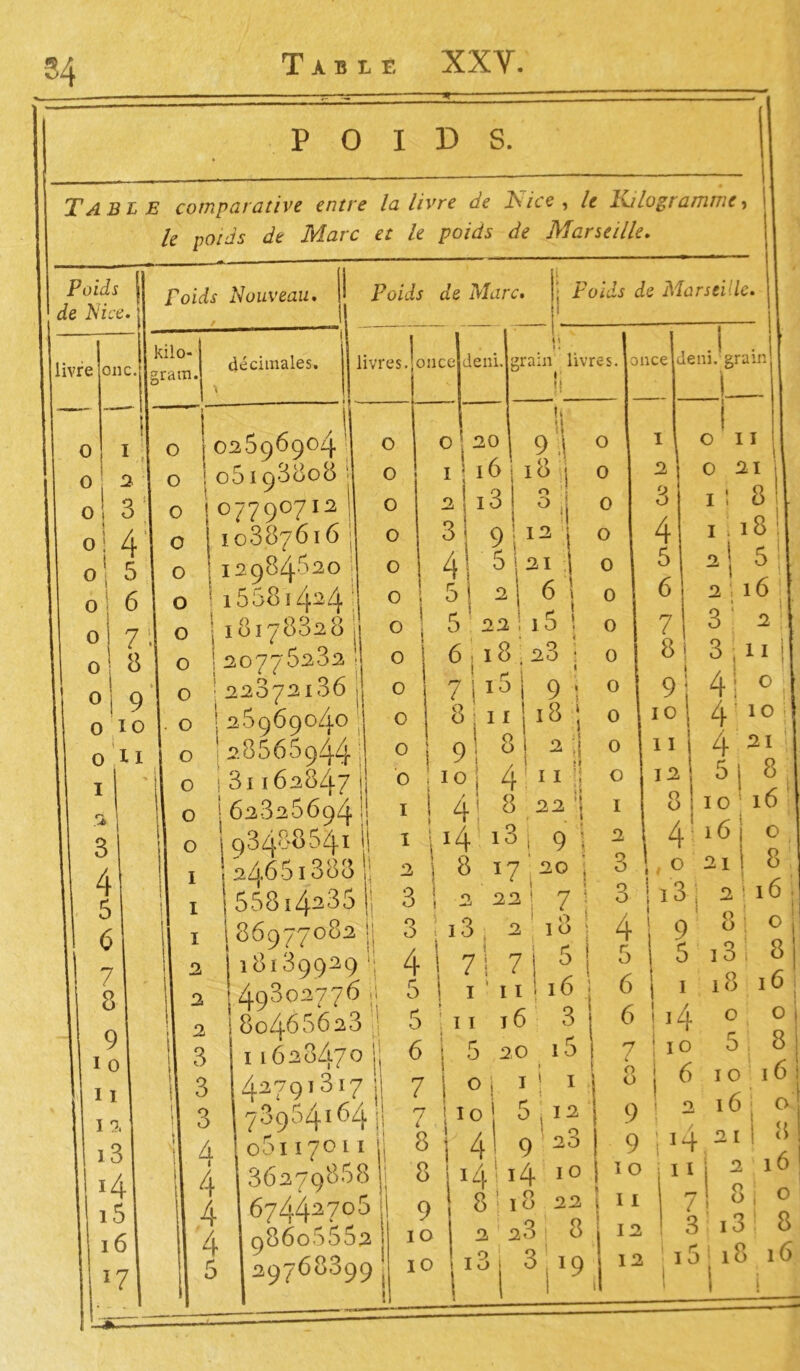 34 TABLE XXV.
POIDS.
TABLE comparative entre la livre de Nice, le Kilogramme,
le poids de Marc et le poids de Marseille.
Poids de Nice. Poids Nouveau. Poids de Marc. Poids de Marseille.
livre onc. kilogram. décimales. livres. once deni. grain livres. once deni. grain
0 1 0 02596904 0 0 20 9 0 1 0 11
0 2 0 05193808 0 1 16 18 0 2 0 21
0 3 0 07790712 0 2 13 3 0 3 1 8
0 4 0 10387616 0 3 9 12 0 4 1 18
0 5 0 12984520 0 4 5 21 0 5 2 5
0 6 0 15581424 0 5 2 6 0 6 2 16
0 7 0 18178328 0 5 22 15 0 7 3 2
0 8 0 20775232 0 6 18 23 0 8 3 11
0 9 0 22372136 0 7 15 9 0 9 4 0
0 10 0 25969040 0 8 11 18 0 10 4 10
0 11 0 28565944 0 9 8 2 0 11 4 21
1 0 31162847 0 10 4 11 0 12 5 8
2 0 62325694 1 4 8 22 1 8 10 16
3 0 93488541 1 14 13 9 2 4 16 0
4 1 24651388 2 8 17 20 3 0 21 8
5 1 55814235 3 2 22 7 3 13 2 16
6 1 86977082 3 13 2 18 4 9 8 0
7 2 18139929 4 7 7 5 5 5 13 8
8 2 49302776 5 1 11 16 6 1 18 16
9 2 80465623 5 11 16 3 6 14 0 0
10 3 11628470 6 5 20 15 7 10 5 8
11 3 42791317 7 0 1 1 8 6 10 16
12 3 73954164 7 10 5 12 9 2 16 0
13 4 05117011 8 4 9 23 9 14 21 8
14 4 36279858 8 14 14 10 10 11 2 16
15 4 67442705 9 8 18 22 11 7 8 0
16 4 98605552 10 2 23 8 12 3 13 8
17 5 29768399 10 13 3 19 12 15 18 16